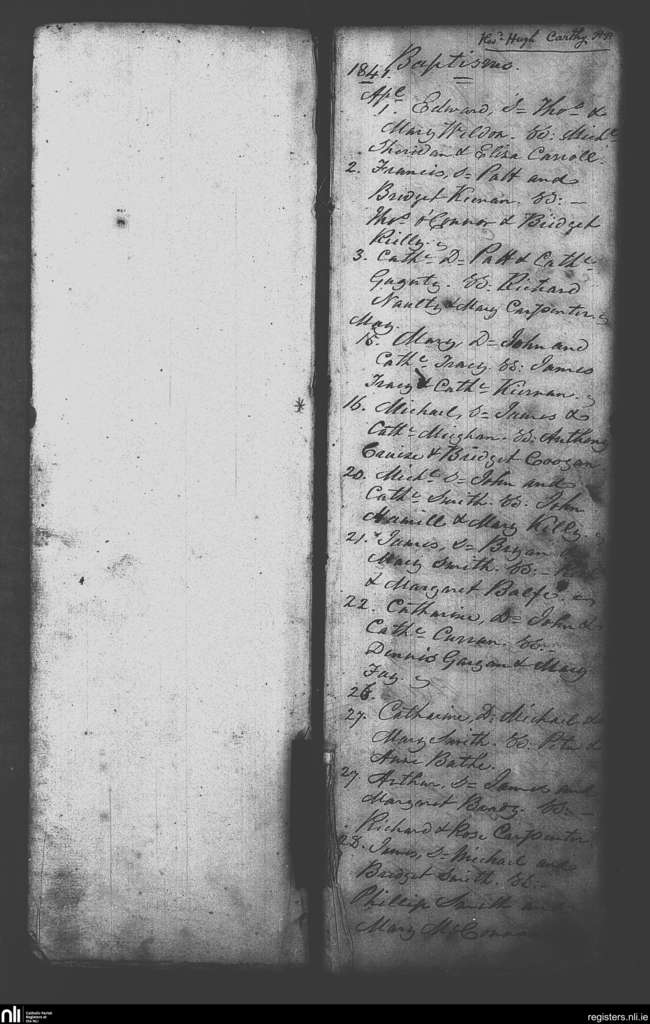 Revd. Hugh Carthy P.P.
1841. Baptisms.
Aple
1. Edward, S= Thos &
Mary Weldon. SS: Michl
Sheridan & Eliza Carroll.
2. Francis, S= Patt and
Bridget Kiernan. SS: —
Thos O'Connor & Bridget
Reilly.
3. Cathe D= Patt & Cathe
Gagerty. SS: Richard
Naulty & Mary Carpenter.
May.
15. Mary D= John and
Cathe Tracy. SS: James
Tracy & Cathe Kiernan.
16. Michael, S= James &
Cathe Meighan. SS: Anthony
Cruise & Bridget Coogan
20. Michl S= John and
Cathe Smith. SS: John
Hamill & Mary Kelly.
21. James, S= Bryan &
Mary Smith. SS: —
& Margaret Balfe.
22. Catharine, D= John &
Cathe Curran. SS: —
Dennis Gargan & Mary
Fay.
26.
27. Catharine, D: Michael &
Mary Smith. SS: Peter &
Anne Bathe.
27. Arthur, S= James and
Margaret Brady. SS: —
Richard & Rose Carpenter.
28. James, S= Michael and
Bridget Smith. SS: —
Phillip Smith and
Mary
nli
Catholic Parish
Registers at
the NLI
registers.nli.ie